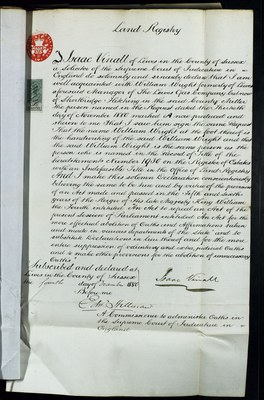 Land Registry
I, Isaac Vinall of Lewes in the County of Sussex
a Solicitor of the Supreme Court of Judicature in
England do solemnly and sincerely declare that I am
well acquainted with William Wright formerly of Lewes
aforesaid Manager of The Lewes Gas Company but now
of in the said County
the person named in the Request dated the thirtieth
day of November 1880 marked A now produced and
shewn to me That I saw him sign the same Request
That the name William Wright at the foot thereof is
the handwriting of the said William Wright and that
the said William Wright is the same person as the
person who is named in the Record of Title of the
hereditaments Number 1930 on the Register of Estates
with an Indefeasible Title in the Office of Land Registry
And I make this solemn Declaration conscientiously
believing the same to be true and by virtue of the provisions
of an Act made and passed in the fifth and sixth
years of the Reign of his late Majesty King William
the Fourth intituled An Act to repeal an Act of the
present Session of Parliament intituled An Act for the
more effectual abolition of Oaths and Affirmations taken
and made in various departments of the State and to
substitute Declarations in lieu thereof and for the more
entire suppression of voluntary and extra judicial Oaths
and to make other provisions for the abolition of unnecessary
Oaths
Subscribed and declared at
Lewes in the County of Sussex
the fourth day of December 1880
Before me
Isaac Vinall
A Commissioner to administer Oaths in
the Supreme Court of Judicature in
England